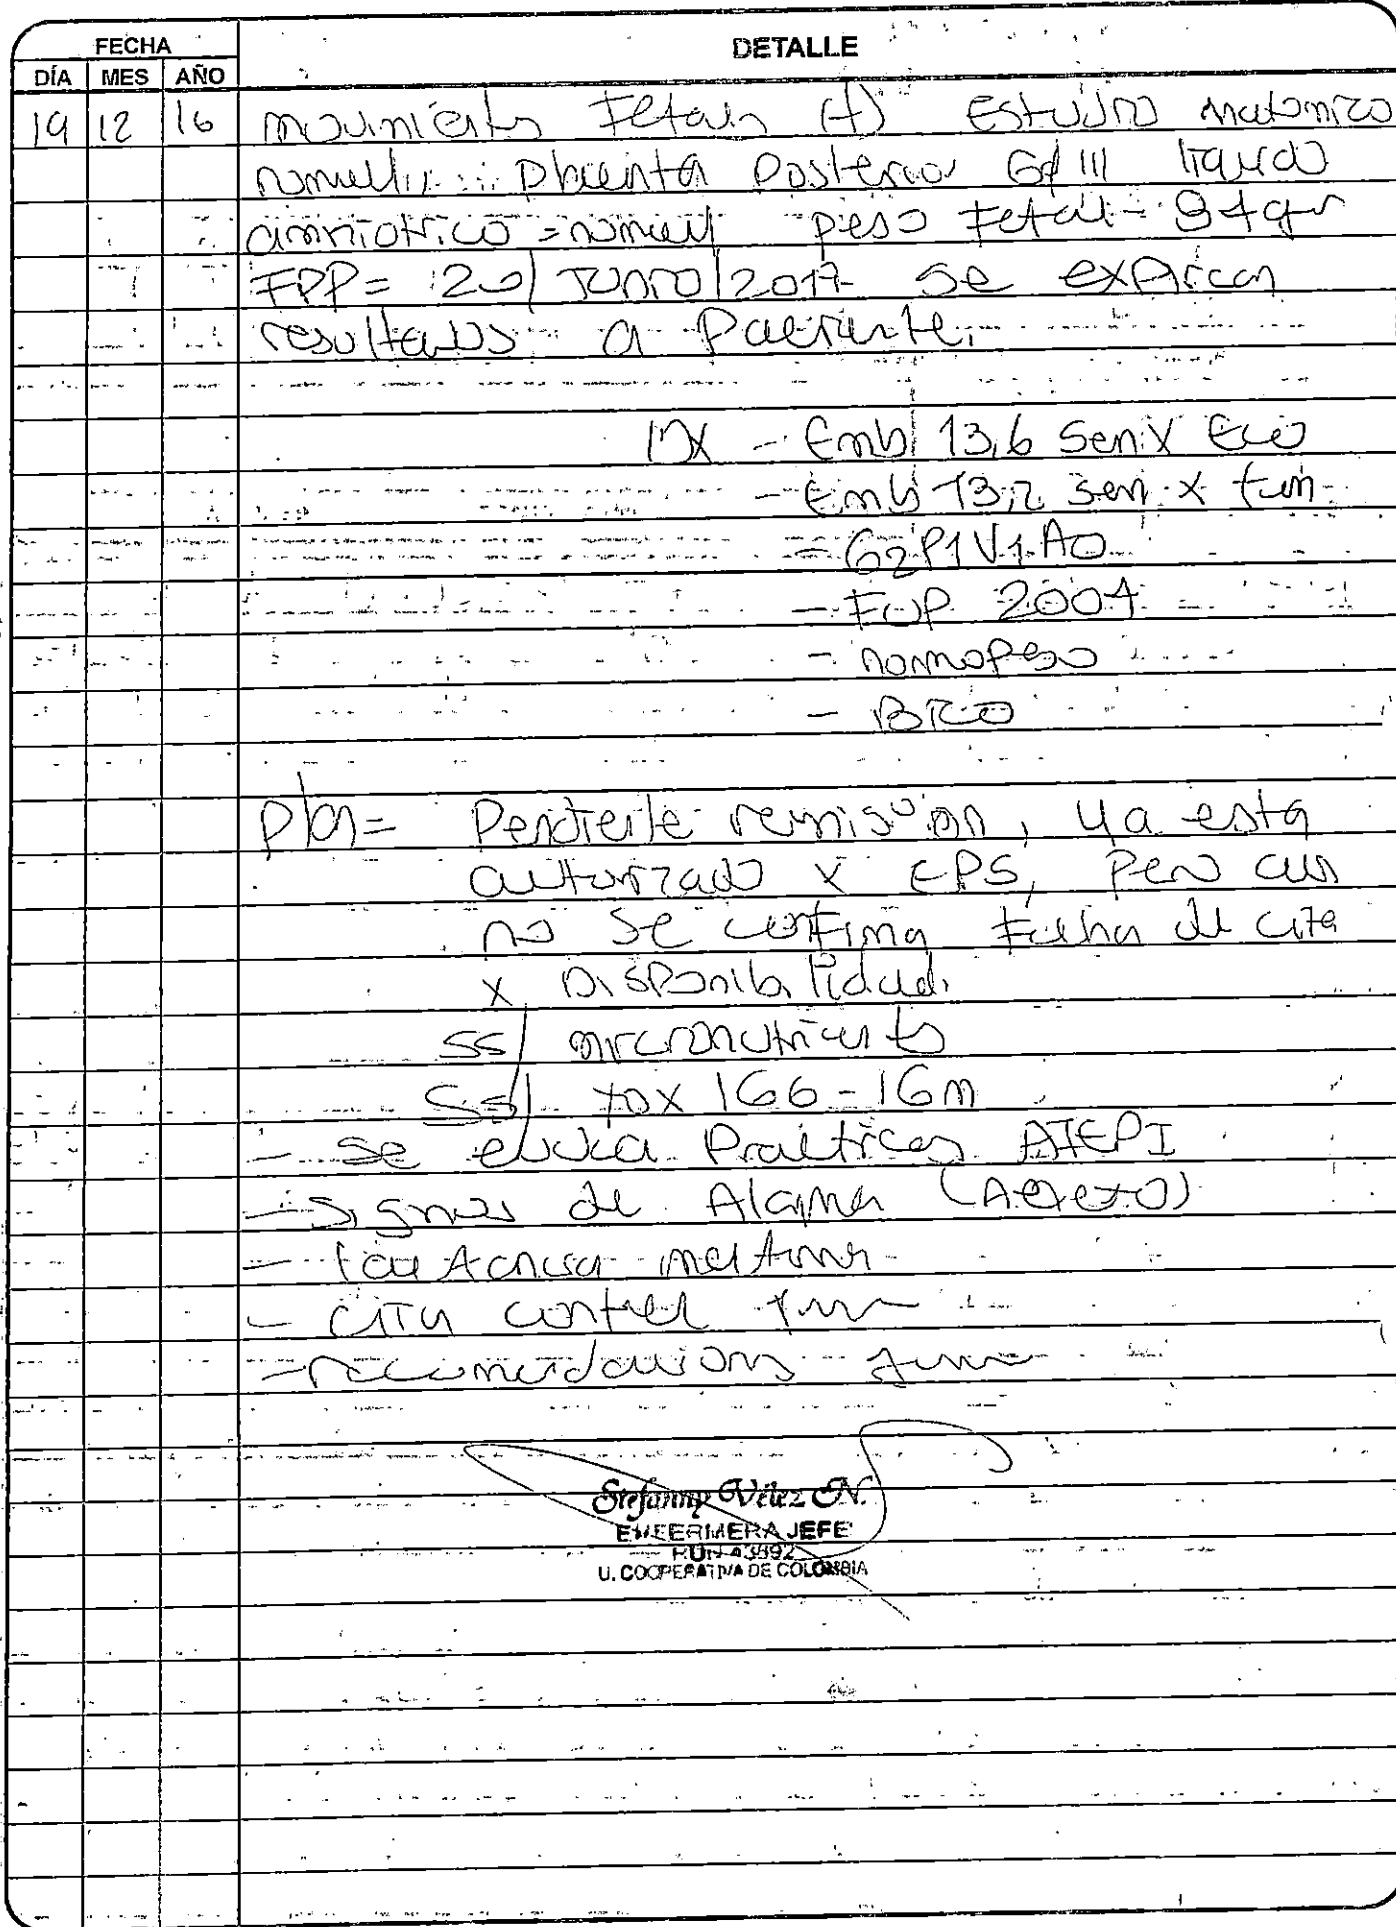 FECHA
DETALLE
DÍA MES AÑO
19 12 16 movimientos Fetales (+) Estudio anatomico
normal placenta Posterior Gd III liquido
amniotico = normal peso Fetal = 84gr
FPP = 20/JUNIO/2017 se explican
resultados a Paciente.
DX - Emb 13,6 Sem X Eco
- Emb 13,2 sem x fum
- G2P1V1A0
- FUP 2004
- normopeso
- BRO
plan = Pendiente remision, ya esta
autorizado x EPS, Pero aun
no se confirma Fecha de cita
x Disponibilidad.
SS/ micronutrientes
SS/ tox IGG - IGM
- se evalua Practicas AIEPI
- signos de Alarma
- lactancia materna
- cita control
- recomendaciones
Stefanny Vélez N.
ENFERMERA JEFE
U. COOPERATIVA DE COLOMBIA